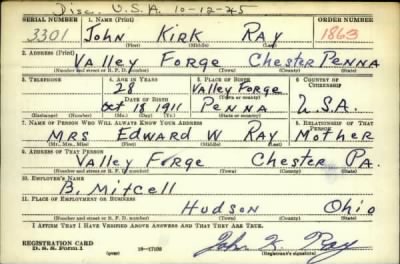 Disc. U.S.A. 10-12-45
SERIAL NUMBER 1. NAME (Print) ORDER NUMBER
3301 John Kirk Ray 1863
(First) (Middle) (Last)
2. ADDRESS (Print)
Valley Forge Chester Penna
(Number and street or R. F. D. number) (Town) (County) (State)
3. TELEPHONE 4. AGE IN YEARS 5. PLACE OF BIRTH 6. COUNTRY OF CITIZENSHIP
28 Valley Forge
(Town or county)
DATE OF BIRTH
Oct 18 1911 Penna U.S.A.
(Exchange) (Number) (Mo.) (Day) (Yr.) (State or country)
7. NAME OF PERSON WHO WILL ALWAYS KNOW YOUR ADDRESS 8. RELATIONSHIP OF THAT PERSON
Mrs Edward W Ray Mother
(Mr., Mrs., Miss) (First) (Middle) (Last)
9. ADDRESS OF THAT PERSON
Valley Forge Chester Pa.
(Number and street or R. F. D. number) (Town) (County) (State)
10. EMPLOYER'S NAME
B. Mitcell
11. PLACE OF EMPLOYMENT OR BUSINESS
Hudson Ohio
(Number and street or R. F. D. number) (Town) (County) (State)
I AFFIRM THAT I HAVE VERIFIED ABOVE ANSWERS AND THAT THEY ARE TRUE.
REGISTRATION CARD
D. S. S. Form 1 (over) 16-17105 John K. Ray
(Registrant's signature)